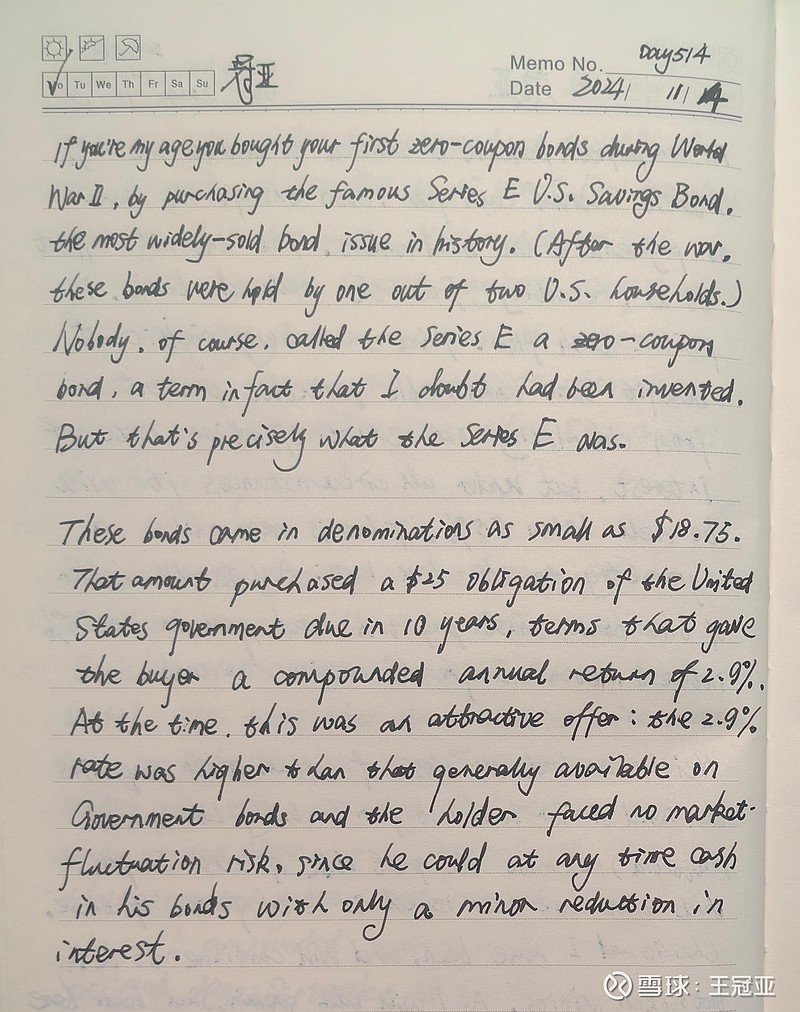 Memo No. Day514
Mo Tu We Th Fr Sa Su 冠亚
Date 2024/ 11/ 4
If you're my age you bought your first zero-coupon bonds during World
War II, by purchasing the famous Series E U.S. Savings Bond,
the most widely-sold bond issue in history. (After the war,
these bonds were held by one out of two U.S. households.)
Nobody, of course, called the Series E a zero-coupon
bond, a term in fact that I doubt had been invented.
But that's precisely what the Series E was.
These bonds came in denominations as small as $18.75.
That amount purchased a $25 obligation of the United
States government due in 10 years, terms that gave
the buyer a compounded annual return of 2.9%.
At the time, this was an attractive offer: the 2.9%
rate was higher than that generally available on
Government bonds and the holder faced no market-
fluctuation risk, since he could at any time cash
in his bonds with only a minor reduction in
interest.
雪球:王冠亚